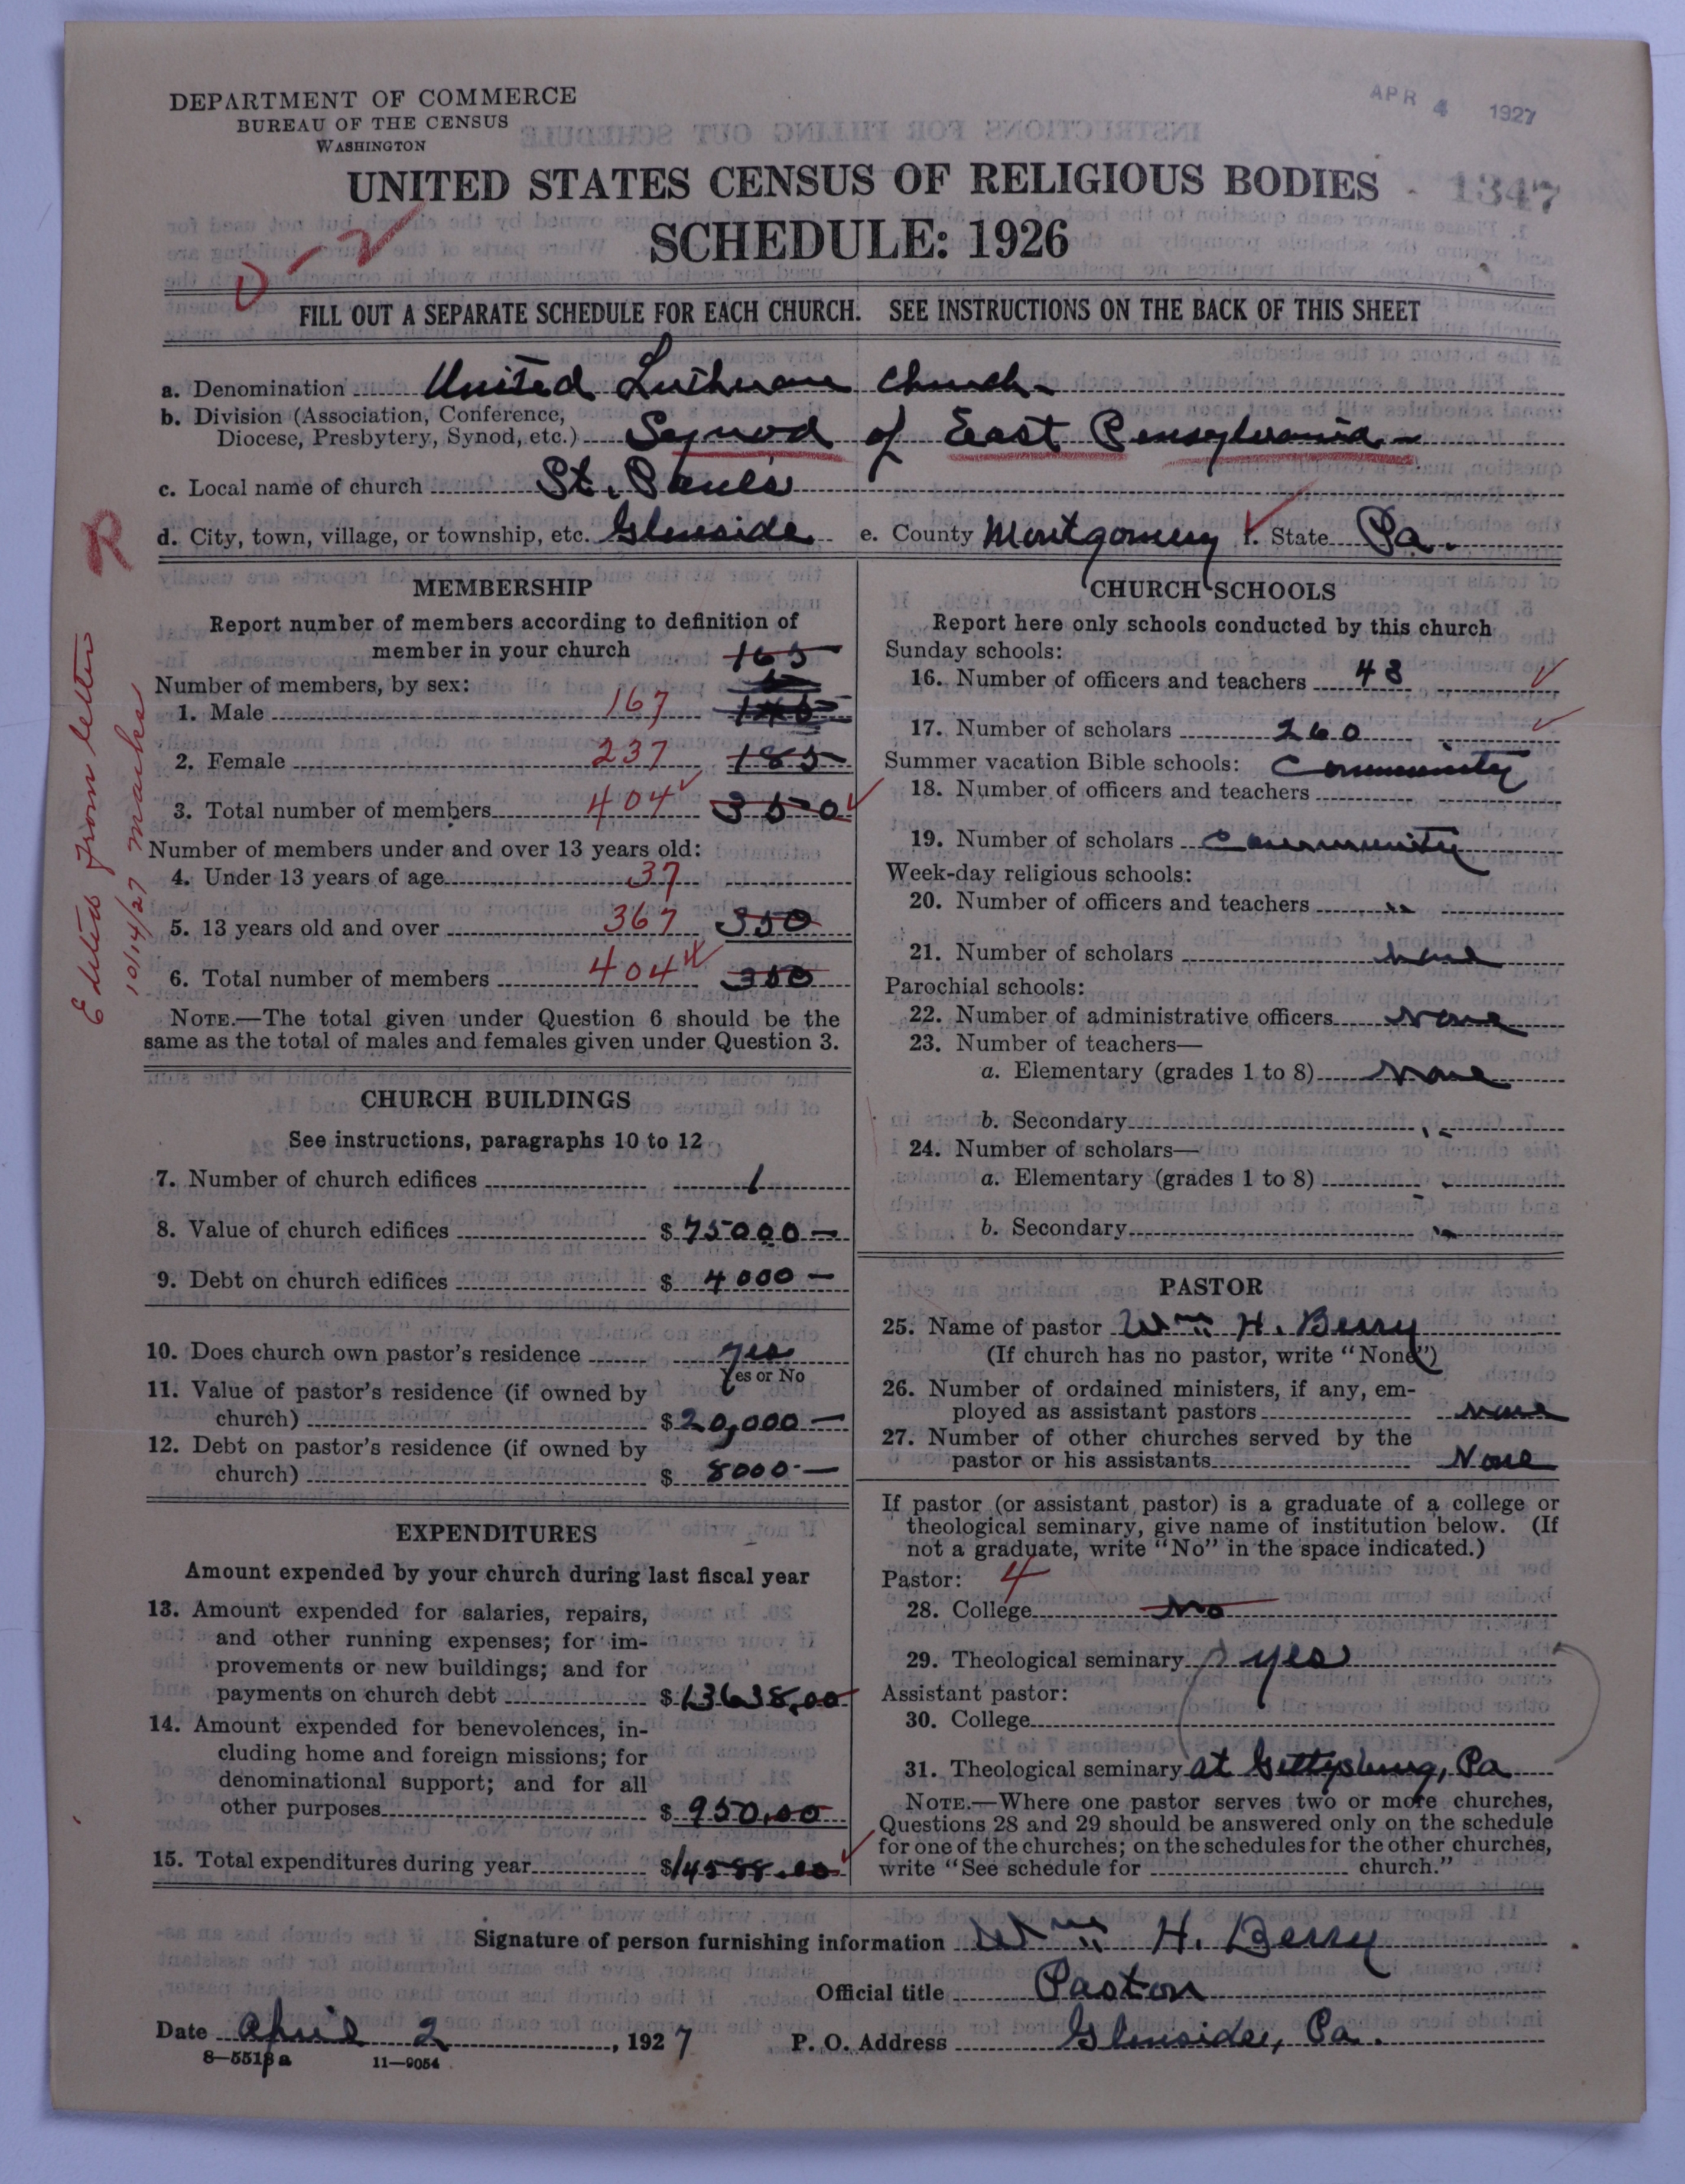 DEPARTMENT OF COMMERCE
BUREAU OF THE CENSUS
WASHINGTON
APR 4 1927
UNITED STATES CENSUS OF RELIGIOUS BODIES
1347
SCHEDULE: 1926
FILL OUT A SEPARATE SCHEDULE FOR EACH CHURCH. SEE INSTRUCTIONS ON THE BACK OF THIS SHEET
a. Denomination United Lutheran Church
b. Division (Association, Conference,
Diocese, Presbytery, Synod, etc.) Synod of East Pensylvania
c. Local name of church St. Paul's
d. City, town, village, or township, etc. Glenside e. County Montgomery f. State Pa.
R
Edited from letter
10/14/27
MEMBERSHIP
Report number of members according to definition of
member in your church 165
Number of members, by sex:
1. Male 167
2. Female 237 185
3. Total number of members 404 350
Number of members under and over 13 years old:
4. Under 13 years of age 37
5. 13 years old and over 367 350
6. Total number of members 404 350
NOTE.—The total given under Question 6 should be the
same as the total of males and females given under Question 3.
CHURCH BUILDINGS
See instructions, paragraphs 10 to 12
7. Number of church edifices 1
8. Value of church edifices $ 75000 —
9. Debt on church edifices $ 4000 —
10. Does church own pastor's residence yes
Yes or No
11. Value of pastor's residence (if owned by
church) $ 20,000 —
12. Debt on pastor's residence (if owned by
church) $ 8000 —
EXPENDITURES
Amount expended by your church during last fiscal year
13. Amount expended for salaries, repairs,
and other running expenses; for im-
provements or new buildings; and for
payments on church debt $ 13638.00
14. Amount expended for benevolences, in-
cluding home and foreign missions; for
denominational support; and for all
other purposes $ 950.00
15. Total expenditures during year $14588.00
CHURCH SCHOOLS
Report here only schools conducted by this church
Sunday schools:
16. Number of officers and teachers 43
17. Number of scholars 260
Summer vacation Bible schools: Community
18. Number of officers and teachers
19. Number of scholars Community
Week-day religious schools:
20. Number of officers and teachers "
21. Number of scholars None
Parochial schools:
22. Number of administrative officers None
23. Number of teachers—
a. Elementary (grades 1 to 8) None
b. Secondary "
24. Number of scholars—
a. Elementary (grades 1 to 8) "
b. Secondary "
PASTOR
25. Name of pastor Wm. H. Berry
(If church has no pastor, write "None")
26. Number of ordained ministers, if any, em-
ployed as assistant pastors None
27. Number of other churches served by the
pastor or his assistants None
If pastor (or assistant pastor) is a graduate of a college or
theological seminary, give name of institution below. (If
not a graduate, write "No" in the space indicated.)
Pastor: 4
28. College No
29. Theological seminary yes
Assistant pastor:
30. College
31. Theological seminary at Gettysburg, Pa
NOTE.—Where one pastor serves two or more churches,
Questions 28 and 29 should be answered only on the schedule
for one of the churches; on the schedules for the other churches,
write "See schedule for church."
Signature of person furnishing information Wm. H. Berry
Official title Pastor
Date April 2, 1927 P. O. Address Glenside, Pa.
8—5518a 11—9054